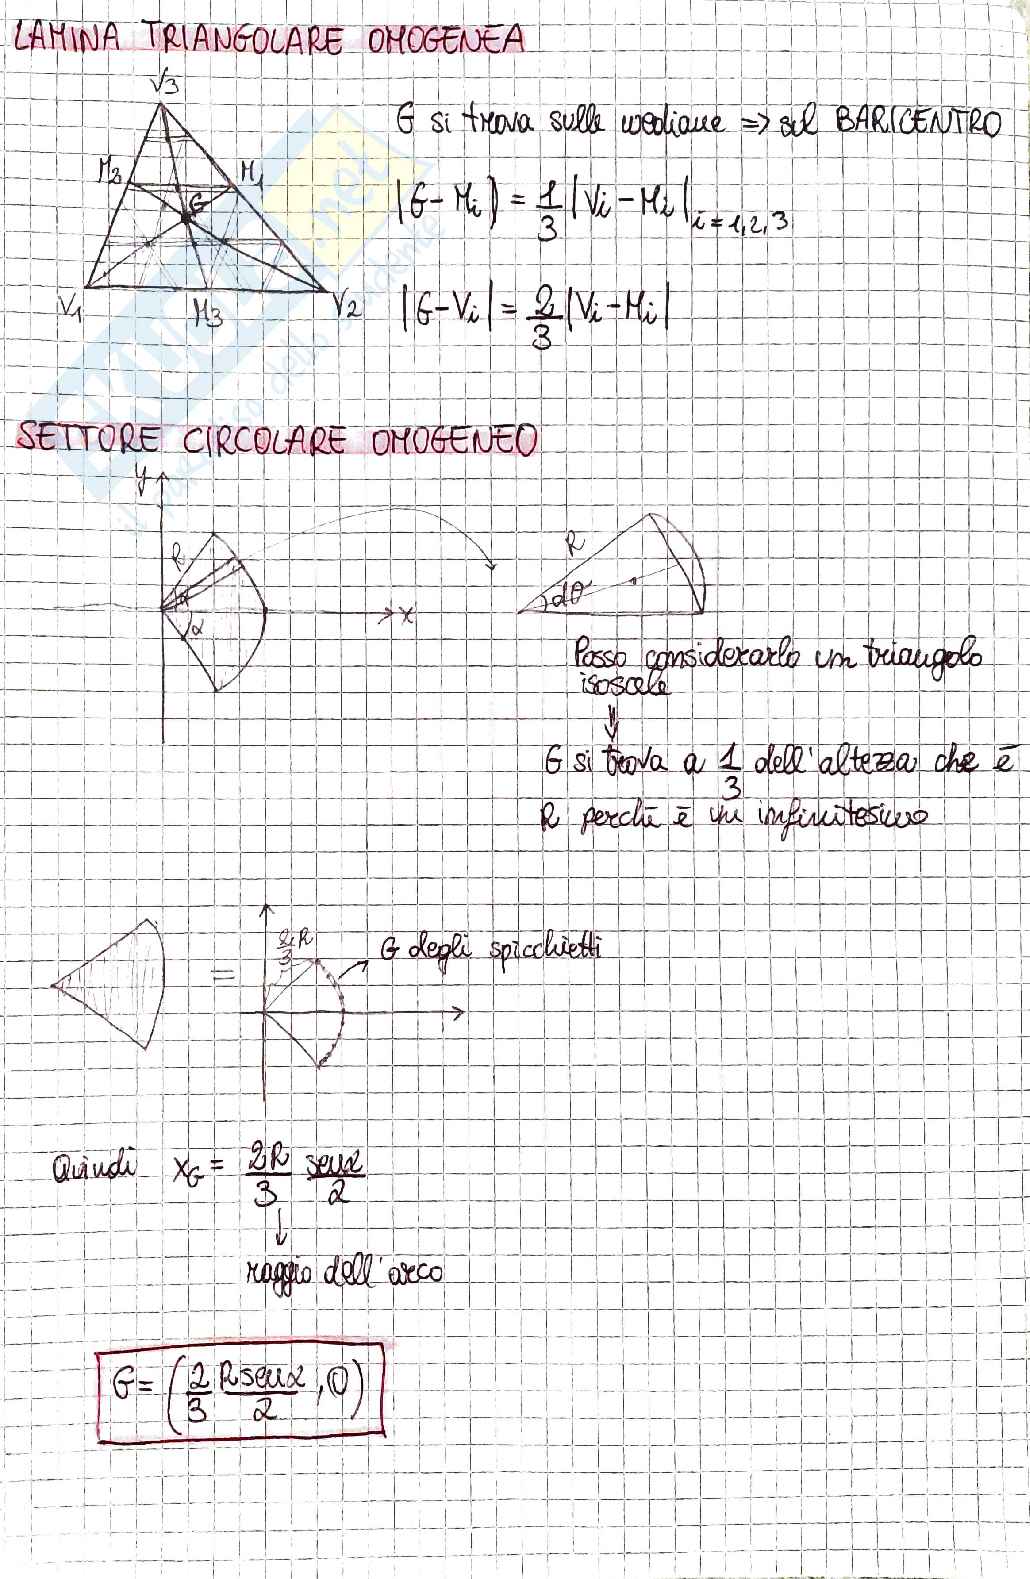 LAMINA TRIANGOLARE OMOGENEA
V3
G si trova sulle mediane => sul BARICENTRO
M2 M1
G
|G-Mi| = 1/3 |Vi-Mi| i=1,2,3
V1 M3 V2
|G-Vi| = 2/3 |Vi-Mi|
SETTORE CIRCOLARE OMOGENEO
y
R
α
α
x
R
dθ
Posso considerarlo un triangolo
isoscele
⇓
G si trova a 1/3 dell'altezza che è
R perchè è un infinitesimo
=
2/3 R
G degli spicchietti
Quindi xG = 2R/3 senα/α
↓
raggio dell'arco
G = (2/3 R senα/α, 0)
.net